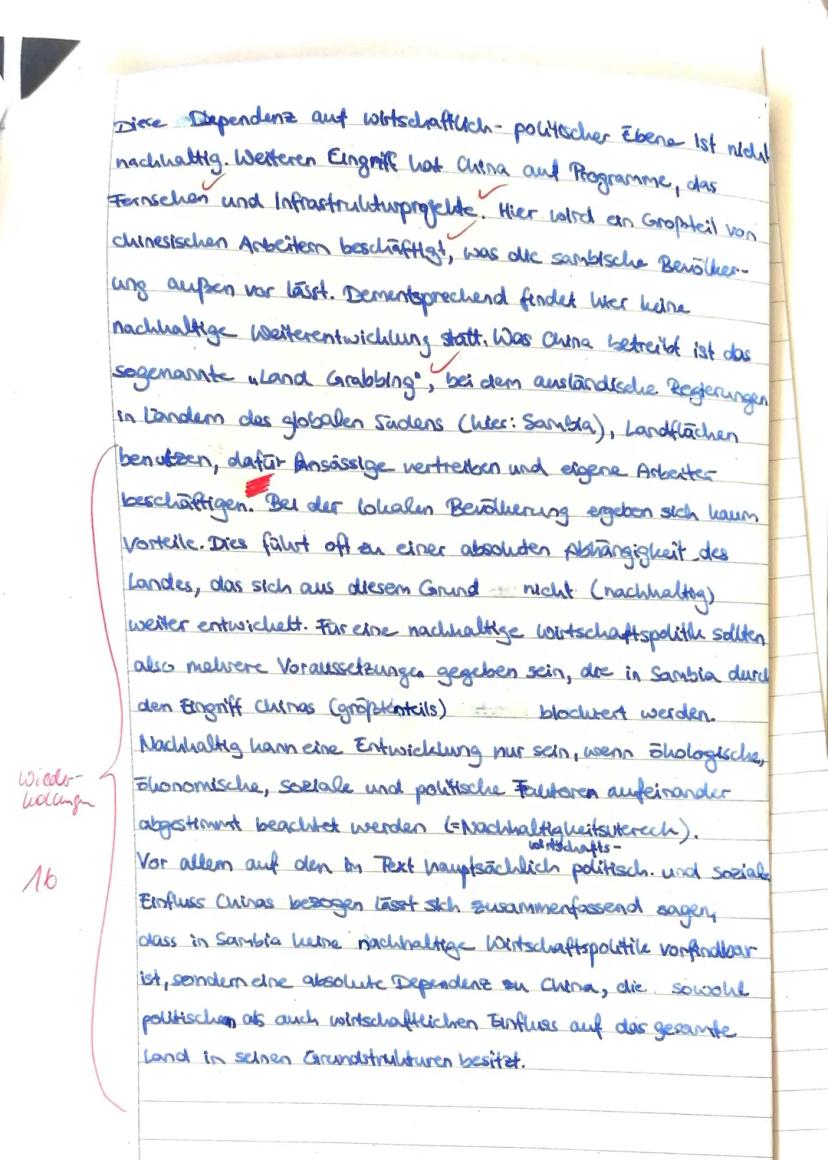 Diese Dependenz auf wirtschaftlich-politischer Ebene ist nicht
nachhaltig. Weiteren Eingriff hat China auf Programme, das
Fernsehen und Infrastrukturprojekte. Hier wird ein Großteil von
chinesischen Arbeitern beschäftigt, was die sambische Bevölker-
ung außen vor lässt. Dementsprechend findet hier keine
nachhaltige Weiterentwicklung statt. Was China betreibt ist das
sogenannte „Land Grabbing", bei dem ausländische Regierungen
in Ländern des globalen Südens (hier: Sambia), Landflächen
benutzen, dafür Ansässige vertreiben und eigene Arbeiter
beschäftigen. Bei der lokalen Bevölkerung ergeben sich kaum
Vorteile. Dies führt oft zu einer absoluten Abhängigkeit des
Landes, das sich aus diesem Grund nicht (nachhaltig)
weiter entwickelt. Für eine nachhaltige Wirtschaftspolitik sollten
also mehrere Voraussetzungen gegeben sein, die in Sambia durch
den Eingriff Chinas (größtenteils) blockiert werden.
Nachhaltig kann eine Entwicklung nur sein, wenn ökologische,
Wieder-
holungen
ökonomische, soziale und politische Faktoren aufeinander
abgestimmt beachtet werden (=Nachhaltigkeitsviereck).
wirtschafts-
Vor allem auf den im Text hauptsächlich politisch. und soziale
16
Einfluss Chinas bezogen lässt sich zusammenfassend sagen,
dass in Sambia keine nachhaltige Wirtschaftspolitik vorfindbar
ist, sondern eine absolute Dependenz zu China, die sowohl
politischen als auch wirtschaftlichen Einfluss auf das gesamte
Land in seinen Grundstrukturen besitzt.